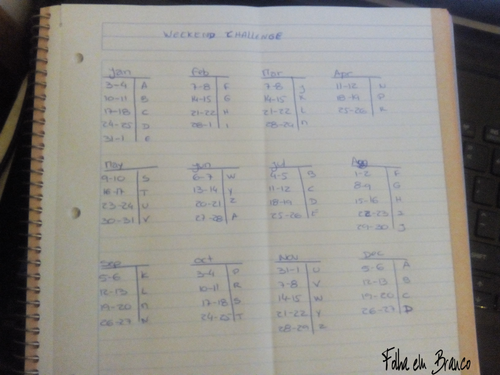 WEEKEND CHALLENGE
Jan Feb Mar Apr
3-4 A 7-8 F 7-8 J 11-12
10-11 B 14-15 G 14-15 K 18-19 P
17-18 C 21-22 H 21-22 L 25-26 R
24-25 D 28-1 I 28-29
31-1 E
May Jun Jul
9-10 S 6-7 W 4-5 B 1-2 F
16-17 T 13-14 Y 11-12 C 8-9 G
23-24 U 20-21 Z 18-19 D 15-16 H
30-31 V 27-28 A 25-26 E 22-23 I
29-30 J
Sep Oct Nov Dec
5-6 K 3-4 P 31-1 U 5-6 A
12-13 L 10-11 R 7-8 V 12-13 B
19-20 17-18 S 14-15 W 19-20 C
26-27 N 24-25 T 21-22 Y 26-27 D
28-29
Folha em Branco